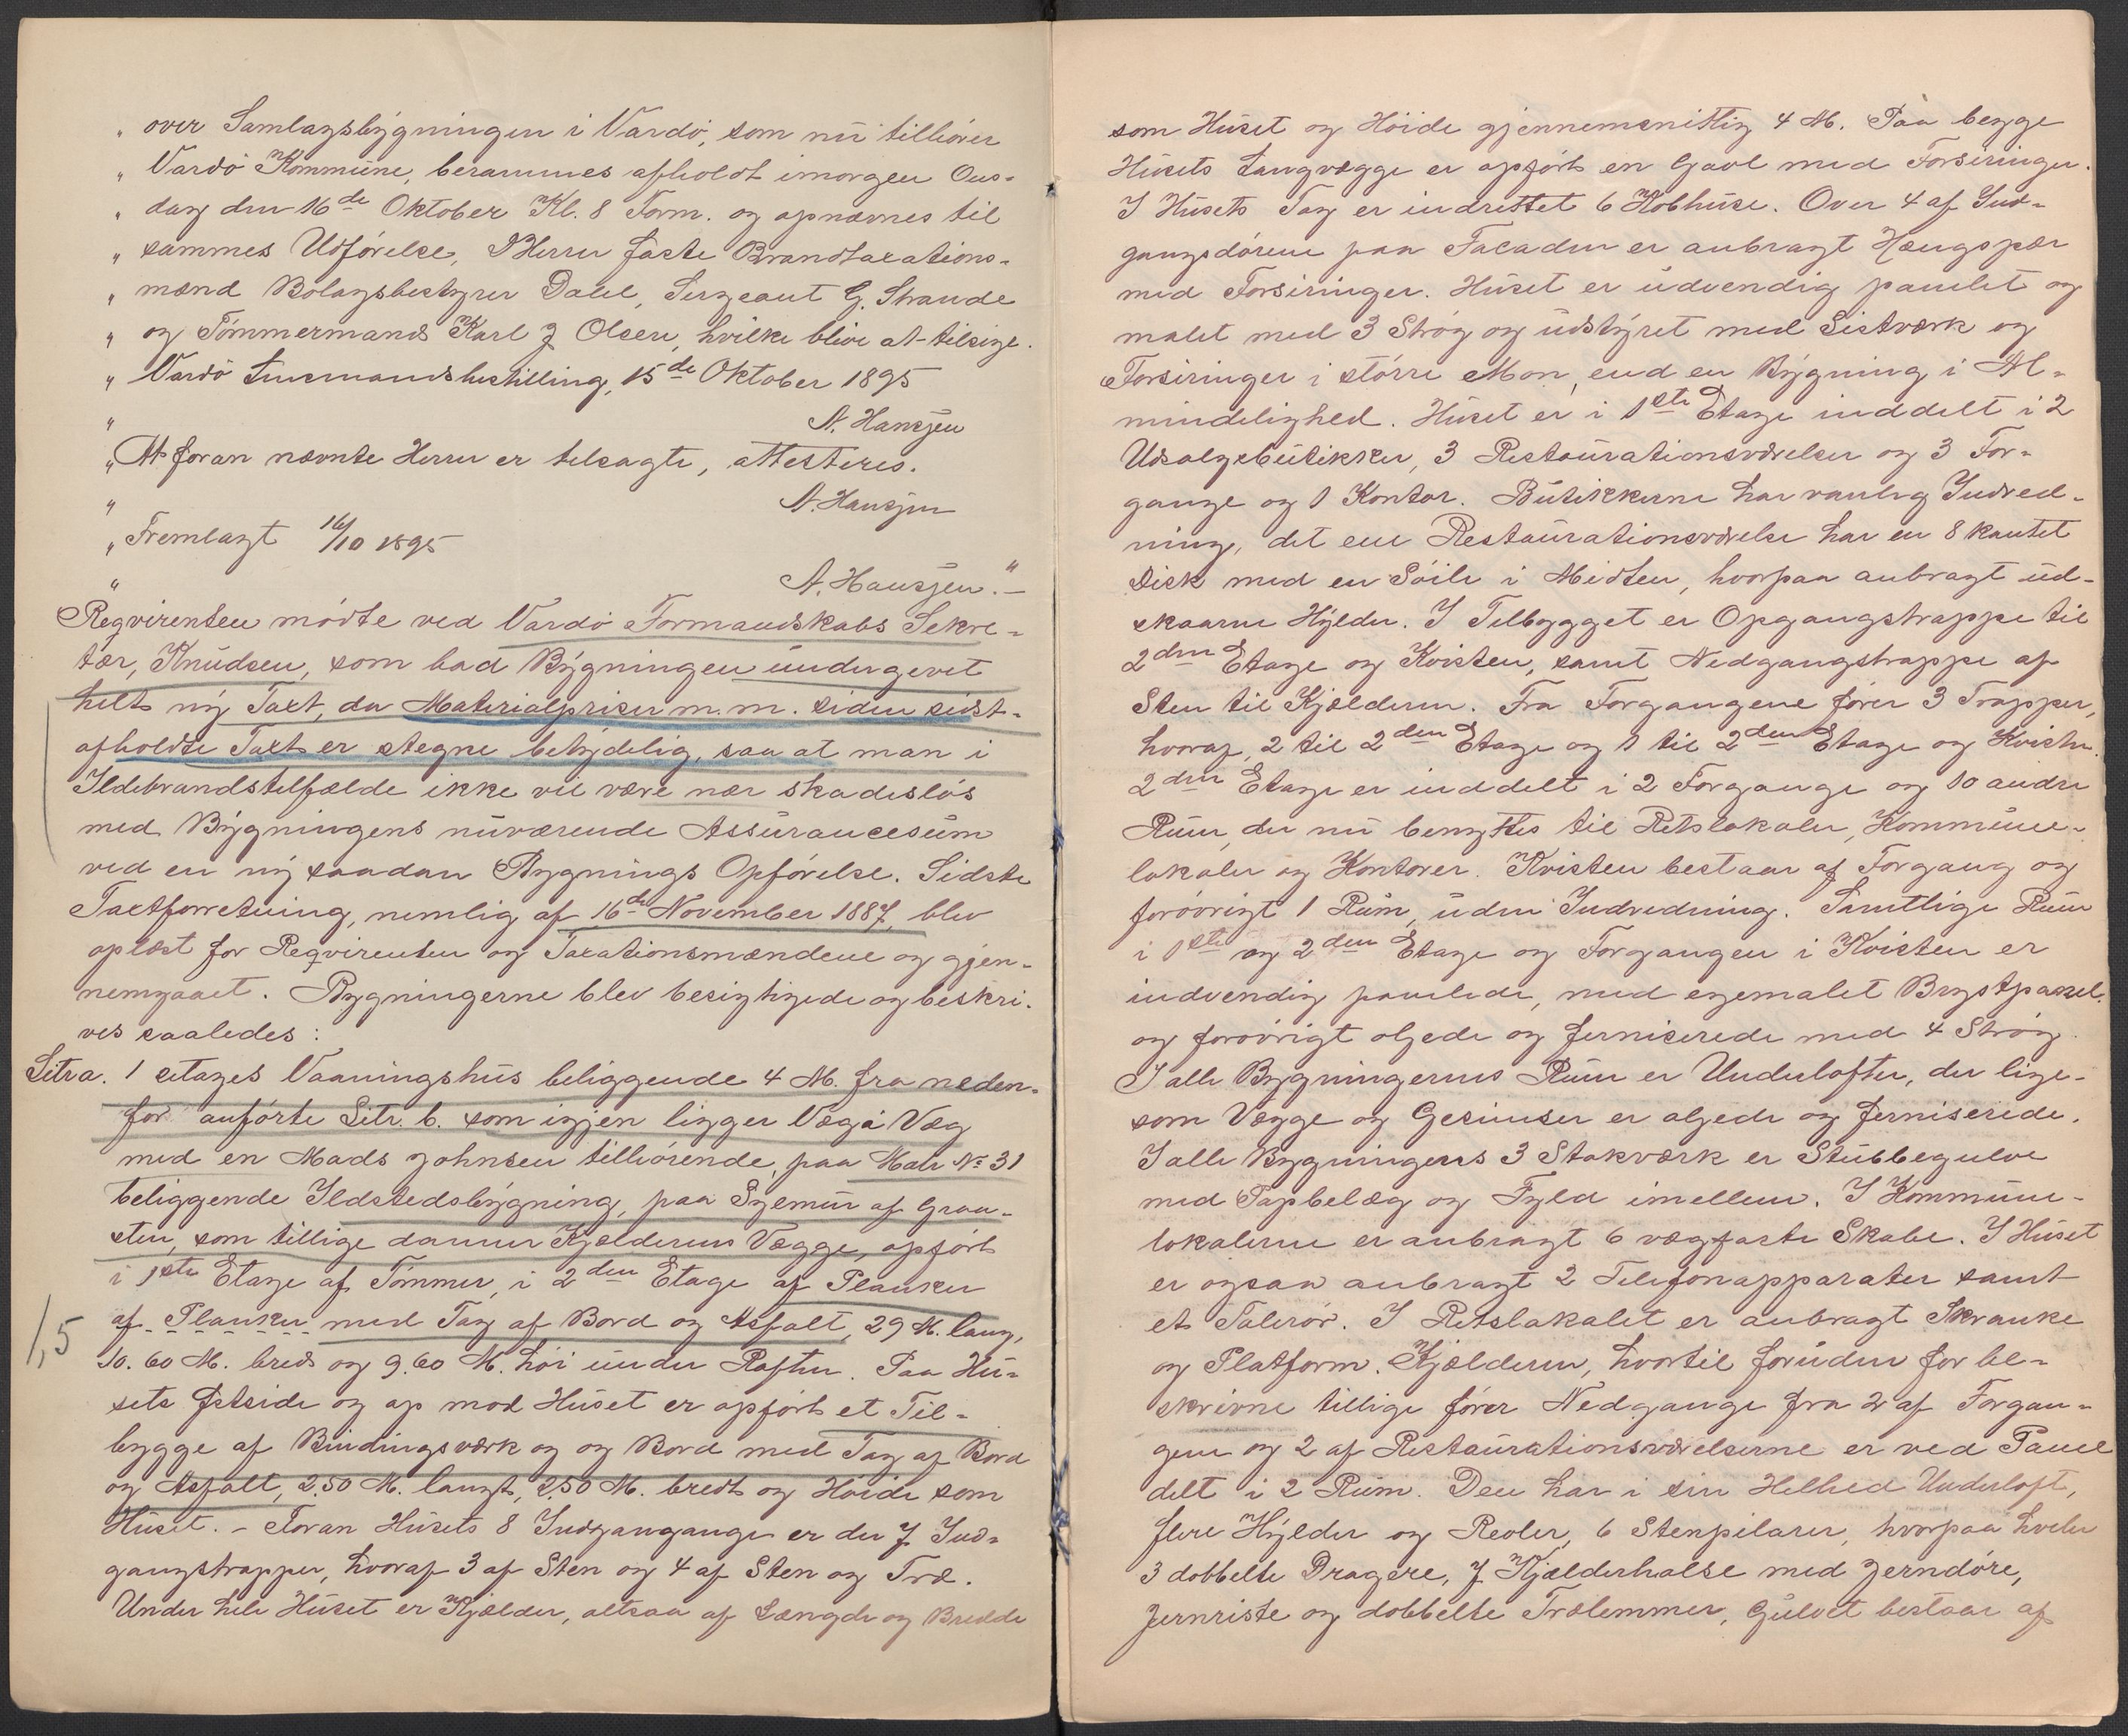 " over Samlagsbygningen i Vardö, som nu tilhörer
" Vardö Kommune, berammes afholdt imorgen Ons-
" dag den 16de Oktober Kl. 8 Form. og opnævnes til
" sammes Udförelse, D'Herrer faste Brandtaxations-
" mænd Bolagsbestyrer Dahl, Sergeant G. Strande
" og Tömmermand Karl J Olsen, hvilke blive at tilsige.
" Vardö Lensmandsbestilling, 15de Oktober 1895
" A. Hansjen
" At foran nævnte Herrer er tilsagte, attesteres.
" A. Hansjen
" Fremlagt 16/10 1895
" A. Hansjen." –
Reqvirenten mödte ved Vardö Formandskabs Sekre-
tær, Knudsen, som bad Bygningen undergivet
helt ny Taxt, da Materialpriser m. m. siden sidst-
afholdte Taxt er stegne betydelig, saa at man i
Ildebrandstilfælde ikke vil være nær skadeslös
med Bygningens nuværende Assurancesum
ved en ny saadan Bygnings Opförelse. Sidste
Taxtforretning, nemlig af 16de November 1887, blev
oplæst for Reqvirenten og Taxationsmændene og gjen-
nemgaaet. Bygningerne blev besigtigede og beskri-
ves saaledes:
Litra. 1 etages Vaaningshus beliggende 4 M. fra neden-
for anförte Litr. b. som igjen ligger Væg i Væg
med en Mads Johnsen tilhörende, paa Matr No 31
beliggende Ildstedsbygning, paa Sylemur af Graa-
sten, som tillige danner Kjælderens Vægge, opfört
i 1ste Etage af Tömmer, i 2den Etage af Planker
af Planker med Tag af Bord og Asfalt, 29 M. lang,
1,5
10.60 M. bred og 9.60 M. höi under Raftet. Paa Hu-
sets Östside og op mod Huset er opfört et Til-
bygge af Bindingsværk og og Bord med Tag af Bord
og Asfalt, 2.50 M. langt, 2.50 M. bredt og Höide som
Huset. – Foran Husets 8 Indgangange er der 7 Ind-
gangstrapper, hvoraf 3 af Sten og 4 af Sten og Træ.
Under hele Huset er Kjælder, altsaa af Længde og Bredde
som Huset og Höide gjennemsnitlig 4 M. Paa begge
Husets Langvægge er opfört en Gavl med Forsiringer.
I Husets Tag er indrettet 6 Kobhuse. Over 4 af Ind-
gangsdörene paa Facaden er anbragt Hængspær
med Forsiringer. Huset er udvendig panelet og
malet med 3 Strög og udstyret med Listværk og
Forsiringer i större Mon, end en Bygning i Al-
mindelighed. Huset er i 1ste Etage inddelt i 2
Udsalgsbutikker, 3 Restaurationsværelser og 3 For-
gange og 1 Kontor. Butikkerne har vanlig Indred-
ning, det ene Restaurationsværelse har en 8 kantet
Disk med en Söile i Midten, hvorpaa anbragt ud-
skaarne Hylder. I Tilbygget er Opgangstrappe til
2den Etage og Kvisten, samt Nedgangstrappe af
Sten til Kjælderen. Fra Forgangene förer 3 Trapper,
hvoraf 2 til 2den Etage og 1 til 2den Etage og Kvisten.
2den Etage er inddelt i 2 Forgange og 10 andre
Rum, der nu benyttes til Retslokaler, Kommune-
lokaler og Kontorer. Kvisten bestaar af Forgang og
forövrigt 1 Rum, uden Indredning. Samtlige Rum
i 1ste og 2den Etage og Forgangen i Kvisten er
indvendig panelede, med egemalet Brystpanel.
og forövrigt oljede og ferniserede med 4 Strög.
I alle Bygningernes Rum er Underlofter, der lige-
som Vægge og Gesimser er oljede og ferniserede.
I alle Bygningens 3 Stokværk er Stubbegulve
med Papbelæg og Fyld imellem. I Kommune-
lokalerne er anbragt 6 vægfaste Skabe. I Huset
er ogsaa anbragt 2 Telefonapparater samt
et Talerör. I Retslokalet er anbragt Skranke
og Platform. Kjælderen, hvortil foruden for be-
skrivne tillige förer Nedgange fra 2 af Forgan-
gene og 2 af Restaurationsværelserne er ved Panel
delt i 2 Rum. Den har i sin Helhed Underloft,
flere Hylder og Reoler, 6 Stenpilarer, hvorpaa hviler
3 dobbelte Dragere, 7 Kjælderhalse med Jerndöre,
Jernriste og dobbelte Trælemmer, Gulvet bestaar af